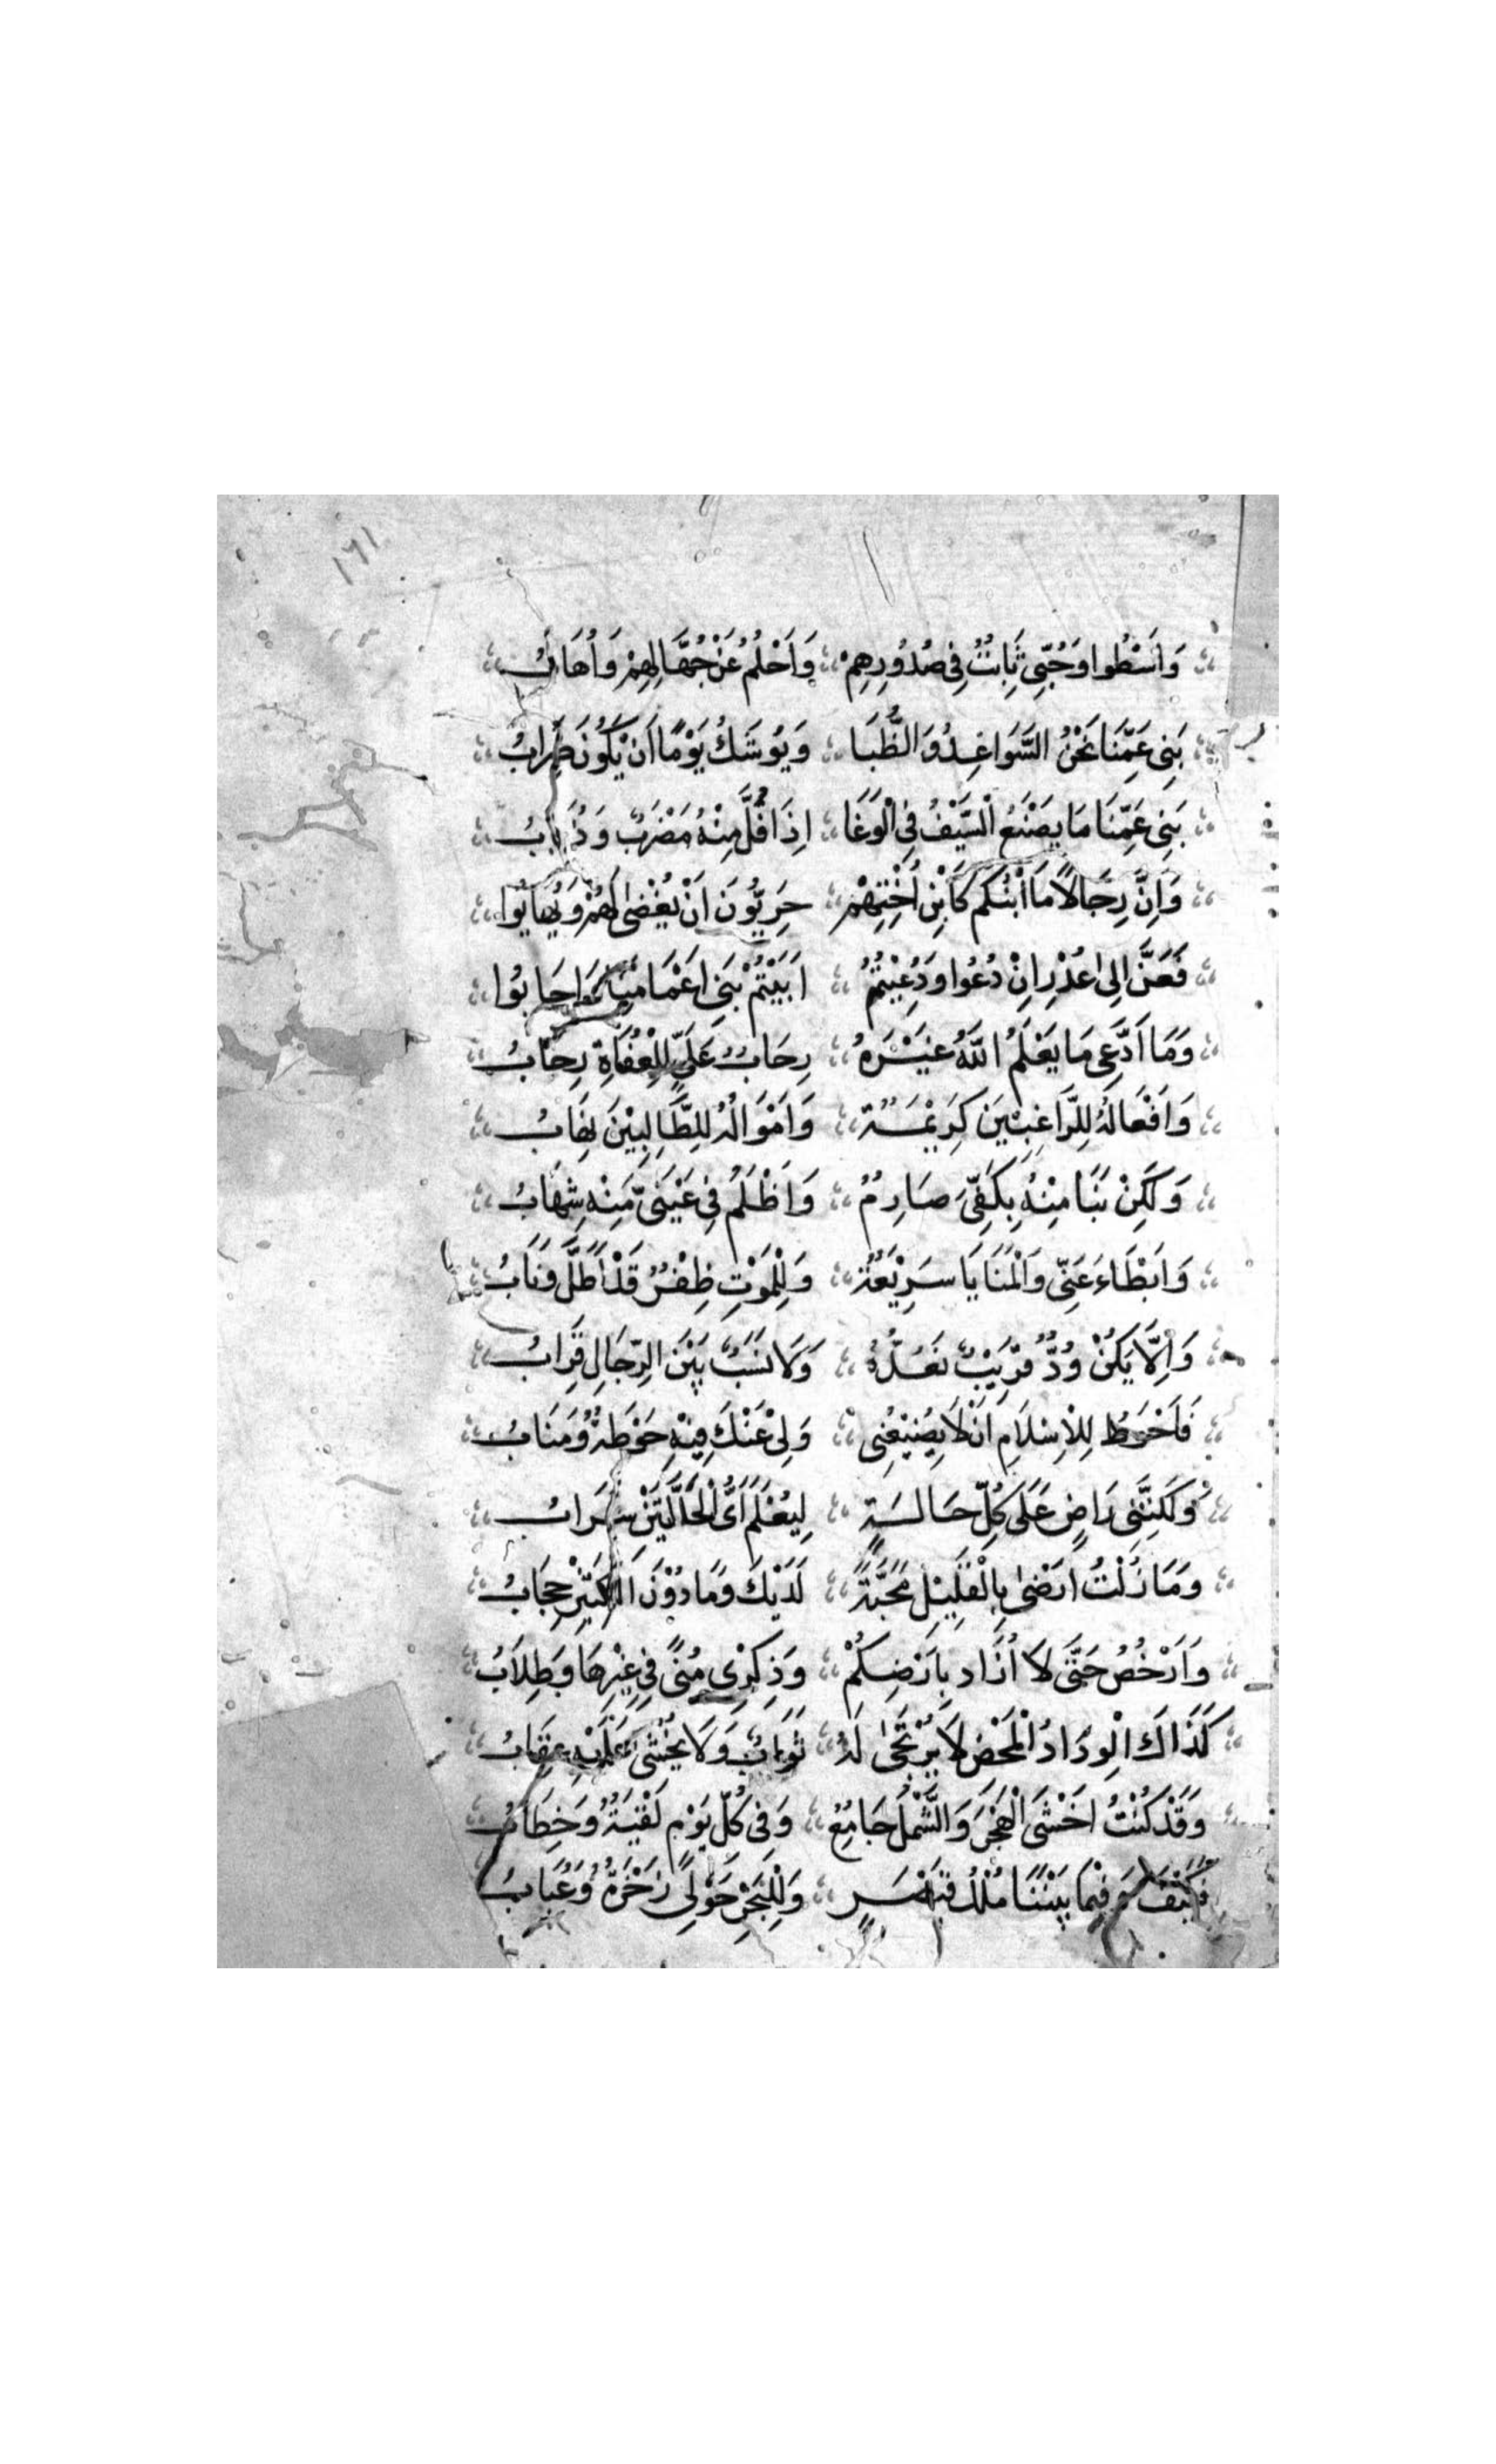 ١٦١
وَاَسْطُوا وَحُبِّى ثَابِتٌ فِى صُدُورِهِمْ وَاَحْلُمُ عَنْ جُهَّالِهِمْ وَاُهَابُ
بَنِى عَمِّنَا نَحْنُ السَّوَاعِدُ وَالظُّبَا وَيُوشَكُ يَوْمًا اَنْ يَكُونَ ضِرَابُ
بَنِى عَمِّنَا مَا يَصْنَعُ السَّيْفُ فِى الْوَغَا اِذَا فُلَّ مِنْهُ مَضْرَبٌ وَذُبَابُ
وَاِنَّ رِجَالًا مَا اَبْنُكُم كَاَبْنِ اُخْتِهِمْ حَرِيُّونَ اَنْ يُقْضٰى لَهُمْ وَيُهَابُوا
فَعَنْ اِلٰى عُذْرٍ اِنْ دُعُوا وَدُعِيْتُمُ اَبَيْتُمْ بَنِى اَعْمَامِنَا وَاَجَابُوا
وَمَا اَدَّعِى مَا يَعْلَمُ اللّٰهُ غَيْرَهُ رِحَابُ عَلِىٍّ لِلْعُفَاةِ رِحَابُ
وَاَفْعَالُهُ لِلرَّاغِبِيْنَ كَرِيْمَةٌ وَاَمْوَالُهُ لِلطَّالِبِيْنَ نِهَابُ
وَلٰكِنْ نَبَا مِنْهُ بِكَفِّىَ صَارِمٌ وَاَظْلَمُ فِى عَيْنَىَّ مِنْهِ شِهَابُ
وَاَبْطَاءَ عَنِّى وَالْمَنَايَا سَرِيْعَةٌ وَلِلْمَوْتِ ظِفْرٌ قَدْ اَطَلَّ وَنَابُ
وَاِلَّا يَكُنْ وُدٌّ قَرِيْبٌ نَعُدُّهُ وَلَا نَسَبٌ بَيْنَ الرِّجَالِ قِرَابُ
فَاَحْوَطُ لِلْاِسْلَامِ اَنْ لَا يُضِيْعُنِى وَلِى عَنْكَ فِيْهِ حَوْطَةٌ وَمَنَابُ
وَلٰكِنَّنِى رَاضٍ عَلَى كُلِّ حَالَةٍ لِيُعْلَمَ اَىُّ الْحَالَتَيْنِ سَرَابُ
وَمَا زِلْتُ اَرْضٰى بِالْقَلِيْلِ مَحَبَّةً لَدَيْكَ وَمَا دُوْنَ الْكَثِيْرِ حِجَابُ
وَاَرْخُصُ حَتَّى لَا اُزَاد بِاَرْضِكُمْ وَذِكْرِى مُنًى فِى غِيْرِهَا وَطِلَابُ
كَذَاكَ الْوِدَادُ الْمَحْض لَا يُرْتَجٰى لَهُ ثَوَابٌ وَلَا يُخْشٰى عَلَيْهِ عِقَابُ
وَقَدْ كُنْتُ اَخْشَى الْهَجْرَ وَالشَّمْلُ جَامِعٌ وَفِى كُلِّ يَوْمٍ لَقْيَةٌ وَخِطَابُ
فَكَيْفَ وَفِيْمَا بَيْنَنَا مُلْكُ قَيْصَرٍ وَلِلْبَحْرِ حَوْلِى زَخْرَةٌ وَعُبَابُ